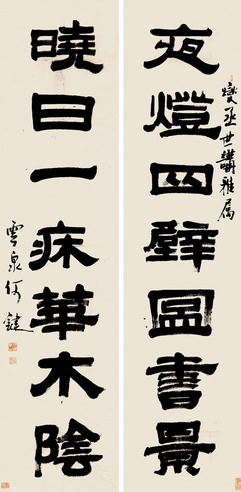 燮丞世講雅屬
夜燈四壁圖書景
曉日一床華木陰
雲泉何鍵